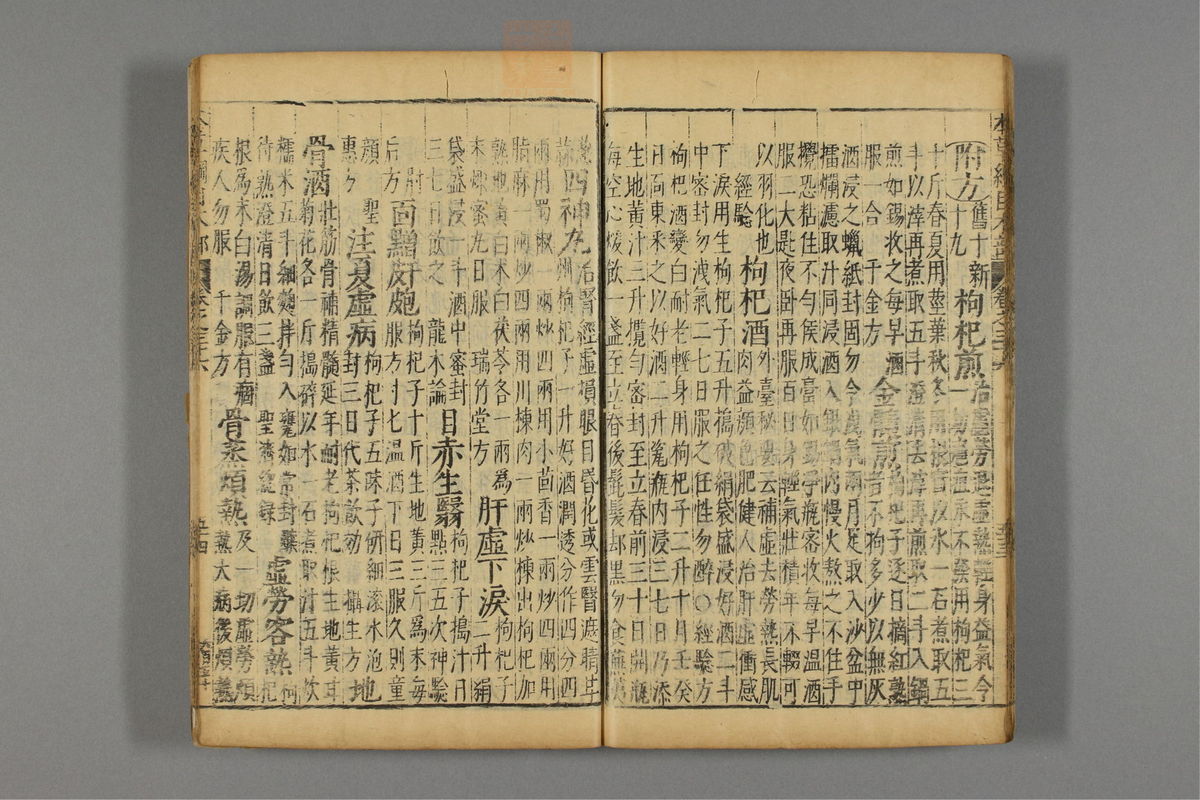 本草綱目木部 卷之三十六 五十三
附方 舊十新十九 枸杞煎 治虛勞退虛熱輕身益氣令
一切癰疽永不發用枸杞三
十斤春夏用莖葉秋冬用根實以水一石煮取五
斗以滓再煮取五斗澄清去滓再煎取二斗入鍋
煎如錫收之每早酒
服一合 千金方
金髓煎 枸杞子逐日摘紅熟
者不拘多少以無灰
酒浸之蠟紙封固勿令洩氣兩月足取入沙盆中
擂爛濾取汁同浸酒入銀鍋內慢火熬之不住手
攪恐粘住不勻候成膏如錫淨瓶密收每早溫酒
服二大匙夜臥再服百日身輕氣壯積年不輟可
以羽化也
經驗
枸杞酒 外臺秘要云補虛去勞熱長肌
肉益顏色肥健人治肝虛衝感
下淚用生枸杞子五升搗破絹袋盛浸好酒二斗
中密封勿洩氣二七日服之任性勿醉○經驗方
枸杞酒變白耐老輕身用枸杞子二升十月壬癸
日面東采之以好酒二升瓷瓶內浸三七日乃添
生地黃汁三升攪勻密封至立春前三十日開瓶
每空心煖飲一盞至立春後髭髮却黑勿食蕪荑
葱蒜 四神丸 治腎經虛損眼目昏花或雲翳遮睛甘
州枸杞子一升好酒潤透分作四分四
兩用蜀椒一兩炒四兩用小茴香一兩炒四兩用
脂麻一兩炒四兩用川楝肉一兩炒揀出枸杞加
熟地黃白朮白茯苓各一兩為
末煉蜜丸日服 瑞竹堂方
肝虛下淚 枸杞子
二升絹
袋盛浸一斗酒中密封
三七日飲之 龍木論
目赤生翳 枸杞子搗汁日
點三五次神驗
肘
后方
面䵟皯皰 枸杞子十斤生地黃三斤為末每
服方寸七溫酒下日三服久則童
顏 聖
惠方
注夏虛病 枸杞子五味子研細滾水泡
封三日代茶飲効 攝生方
地
骨酒 壯筋骨補精髓延年耐老枸杞根生地黃甘
菊花各一斤搗碎以水一石煮取汁五斗炊
糯米五斗細麴拌勻入甕如常封釀
待熟澄清日飲三盞 聖濟總錄
虛勞客熱 枸
杞
根為末白湯調服有痼
疾人勿服 千金方
骨蒸煩熱 及一切虛勞煩
熱大病後煩熱
本草綱目木部 卷之三十六 五十四